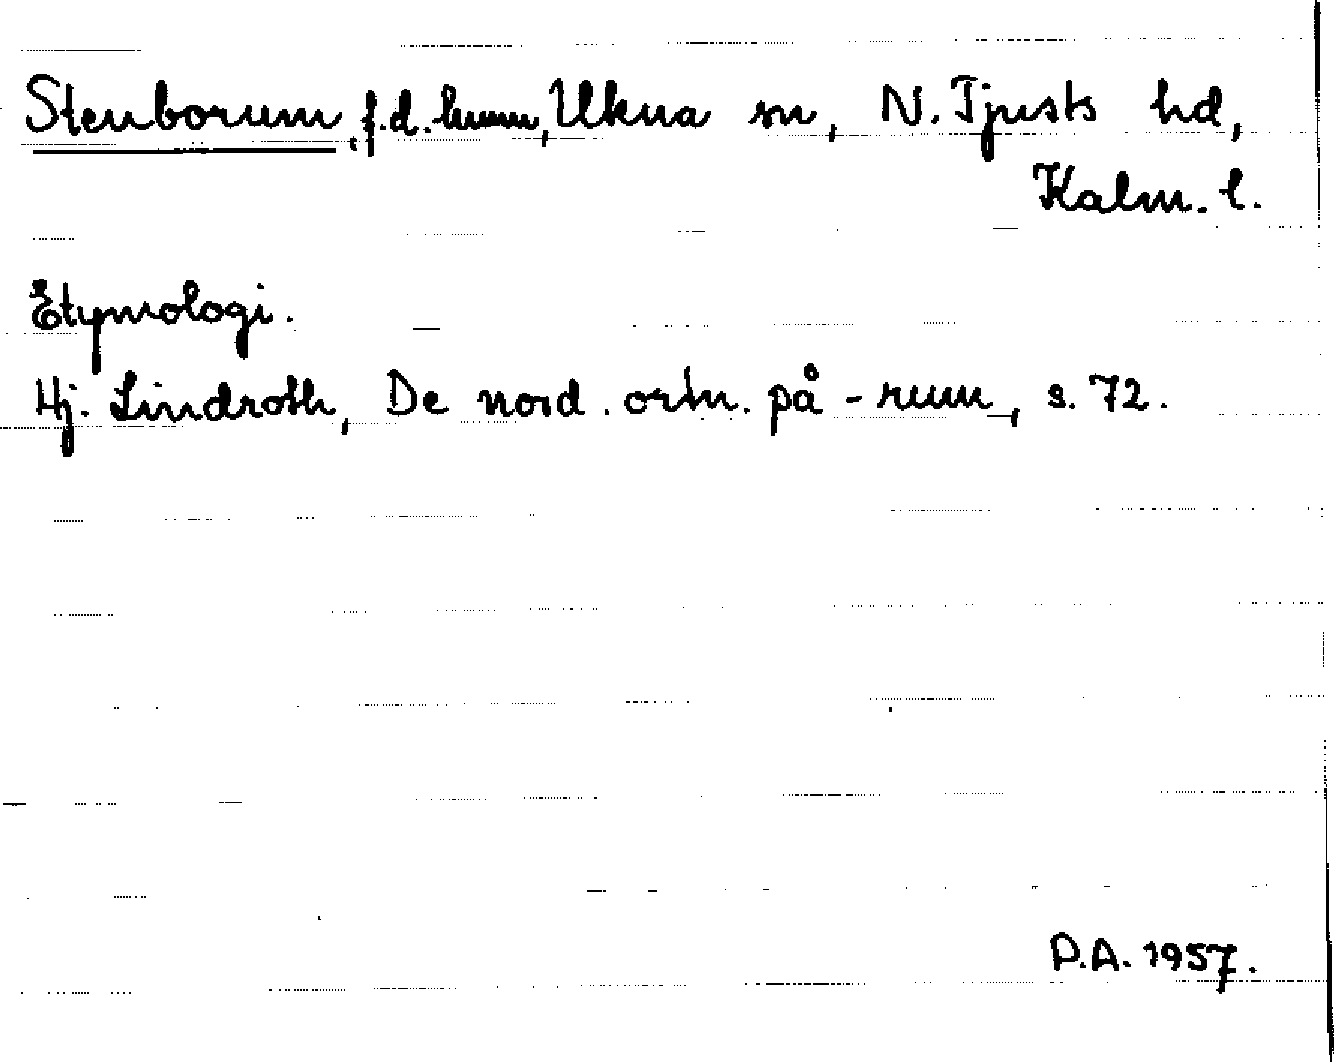 Stenborum, f.d. hmm, Ukna sn, N. Tjusts hd,
Kalm. l.
Etymologi.
Hj. Lindroth, De nord. ortn. på -rum, s. 72.
P.A. 1957.